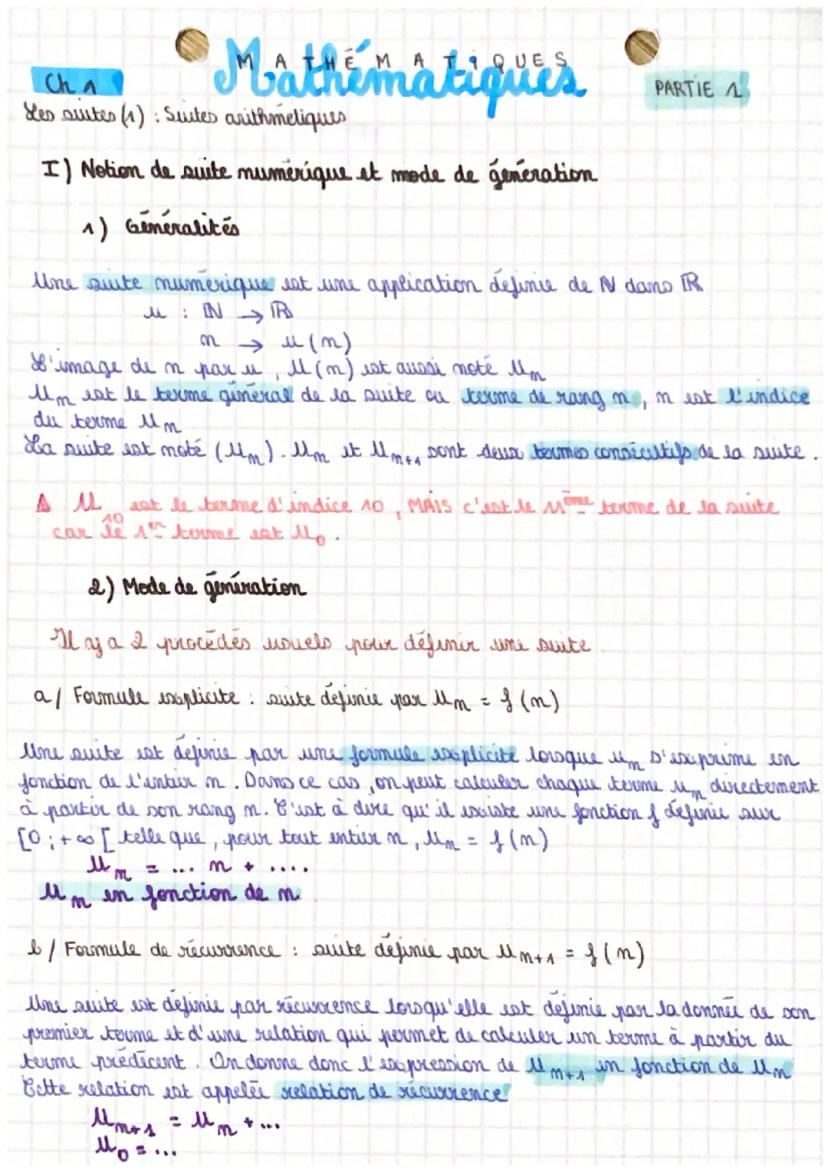 MATHÉMATIQUES
Mathématiques
Ch 1
PARTIE 1
Les suites (1) : Suites arithmétiques
I) Notion de suite numérique et mode de génération
1) Généralités
Une suite numérique est une application définie de ℕ dans ℝ
u : ℕ → ℝ
n → u(n)
L'image de n par u, U(n) est aussi noté Un
Un est le terme général de la suite ou terme de rang n, n est l'indice
du terme Un
La suite est noté (Un). Un et Un+1 sont deux termes consécutifs de la suite.
⚠ U10 est le terme d'indice 10, MAIS c'est le 11ème terme de la suite
car le 1er terme est U0.
2) Mode de génération
Il y a 2 procédés usuels pour définir une suite
a/ Formule explicite : suite définie par Un = f(n)
Une suite est définie par une formule explicite lorsque un s'exprime en
fonction de l'entier n. Dans ce cas, on peut calculer chaque terme un directement
à partir de son rang n. C'est à dire qu'il existe une fonction f définie sur
[0 ; +∞[ telle que, pour tout entier n, Un = f(n)
Un = ... n + ....
Un en fonction de n
b/ Formule de récurrence : suite définie par Un+1 = f(n)
Une suite est définie par récurrence lorsqu'elle est définie par la donnée de son
premier terme et d'une relation qui permet de calculer un terme à partir du
terme prédicent. On donne donc l'expression de Un+1 en fonction de Un
Cette relation est appelée relation de récurrence
Un+1 = Un + ...
U0 = ...